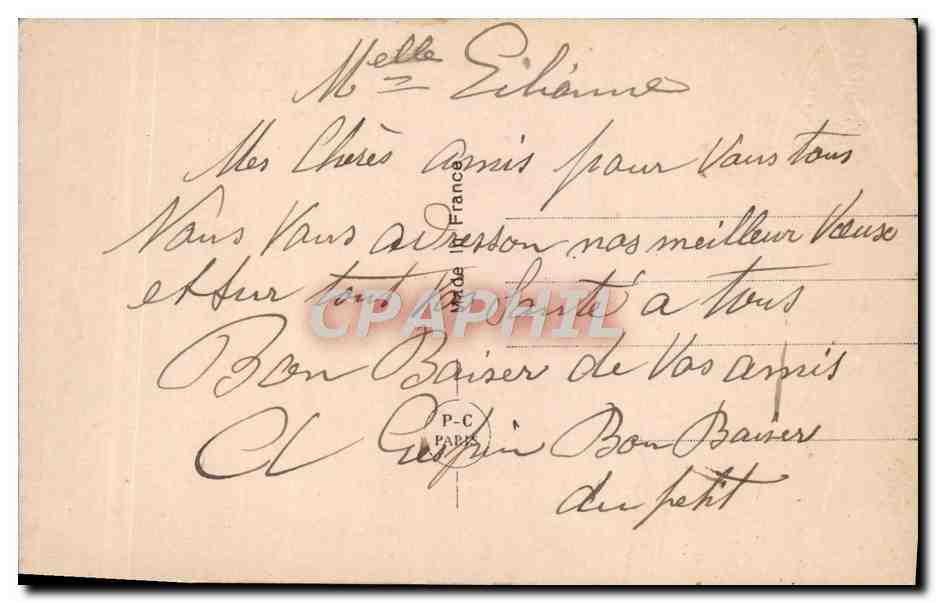 Melle Lilianne
Mes Chères amis pour Vous tous
Nous Vous adresson nos meilleur Vœuse
et sur tout la Santé a tous
Bon Baiser de Vos amis
Bon Baiser
du petit
Made in France
P-C
PARIS
CPARHIL